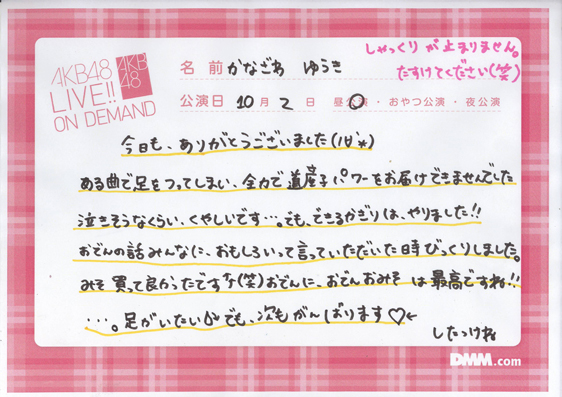 AKB48
LIVE!!
ON DEMAND
AKB
48
名前 かなざわ ゆうき
しゃっくりが止まりません。
たすけてください(笑)
公演日 10月2日 昼公演・おやつ公演・夜公演
今日も、ありがとうございました(ノ∀`*)
ある曲で足をつってしまい、全力で道産子パワーをお届けできませんでした
泣きそうなくらい、くやしいです…。でも、できるかぎりは、やりました!!
おでんの話みんなに、おもしろいって言っていただいた時びっくりしました。
みそ買って良かったですな(笑)おでんに、おでんおみそは最高ですね!!
…。足がいたい でも、次もがんばります♡←
したっけね
DMM.com